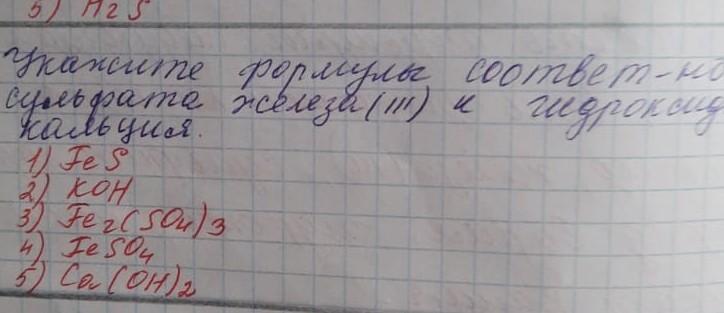 5) H2S
Укажите формулы соответ-но
сульфата железа (III) и гидроксид
кальция.
1) FeS
2) KOH
3) Fe2(SO4)3
4) FeSO4
5) Ca(OH)2